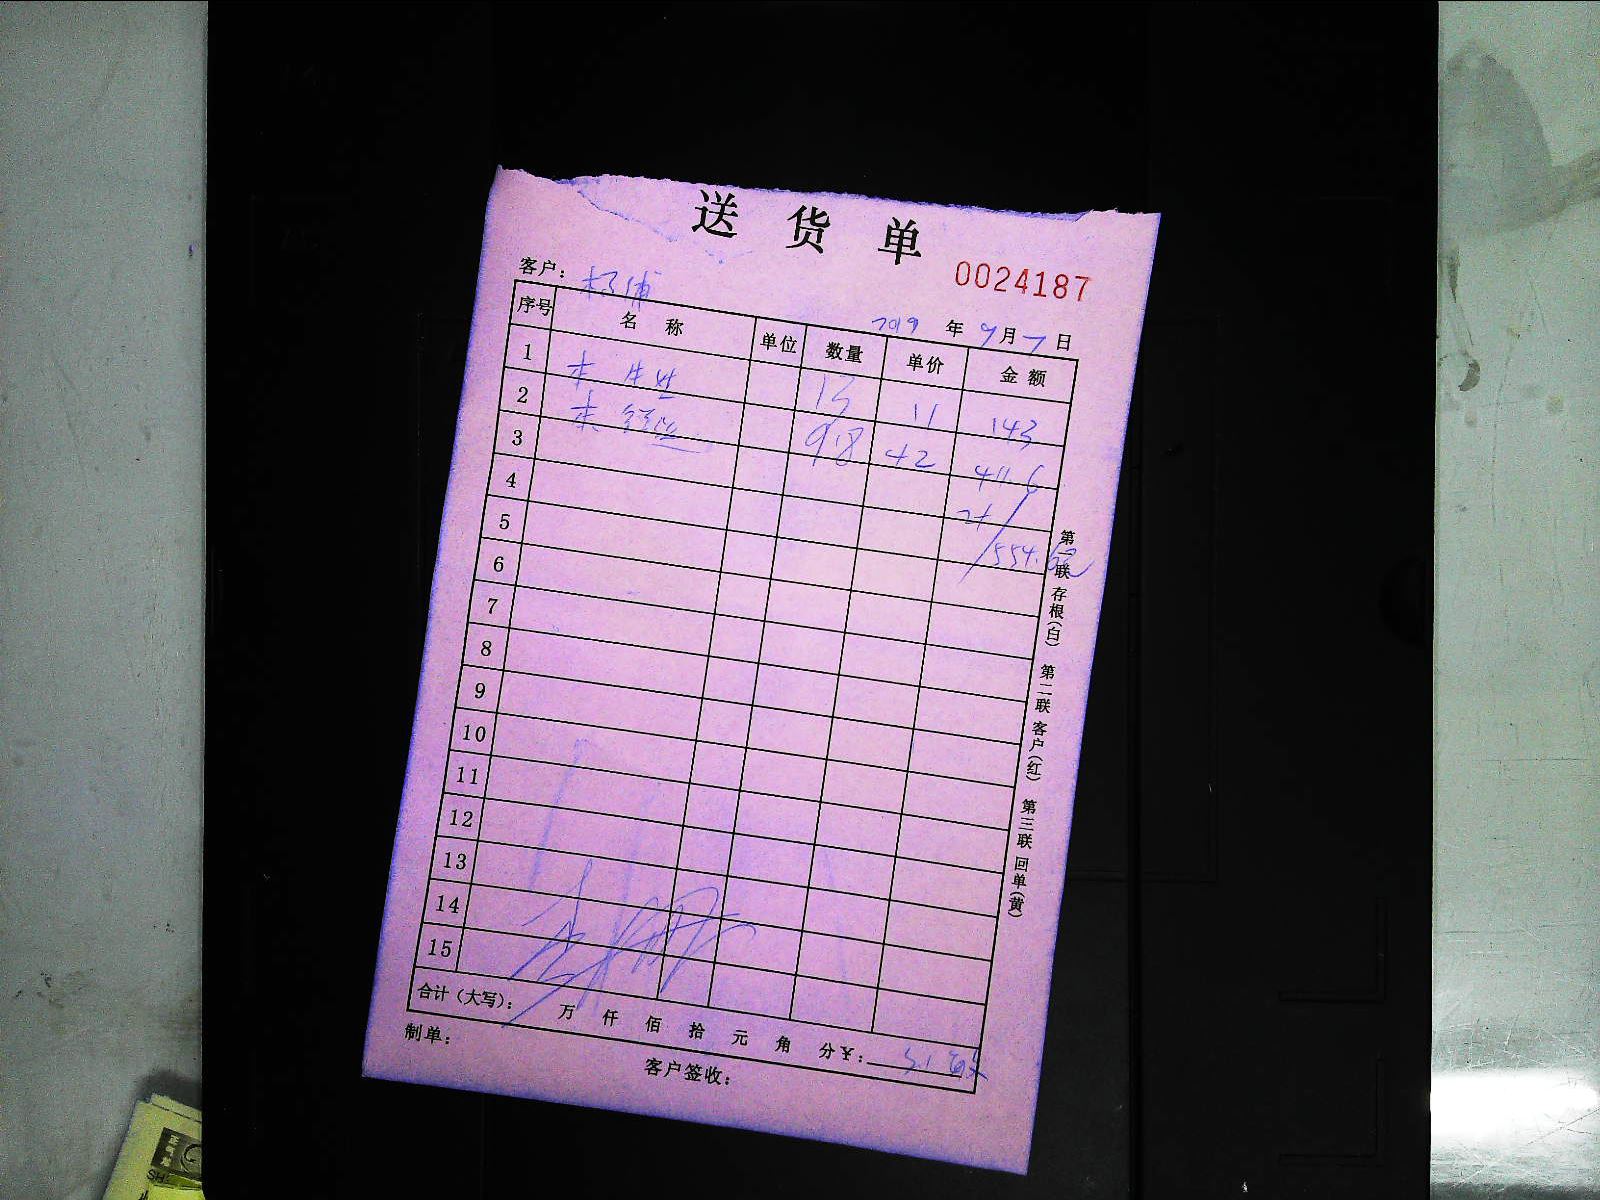 送货单
0024187
客户：杨浦
2019年9月7日
序号 名称 单位 数量 单价 金额
1 13 11 143
2 9.8 42 411.6
3
4 554.6
5
6
7
8
9
10
11
12
13
14
15
合计（大写）： 万 仟 佰 拾 元 角 分 ￥：
制单：
客户签收：
第一联 存根（白） 第二联 客户（红） 第三联 回单（黄）